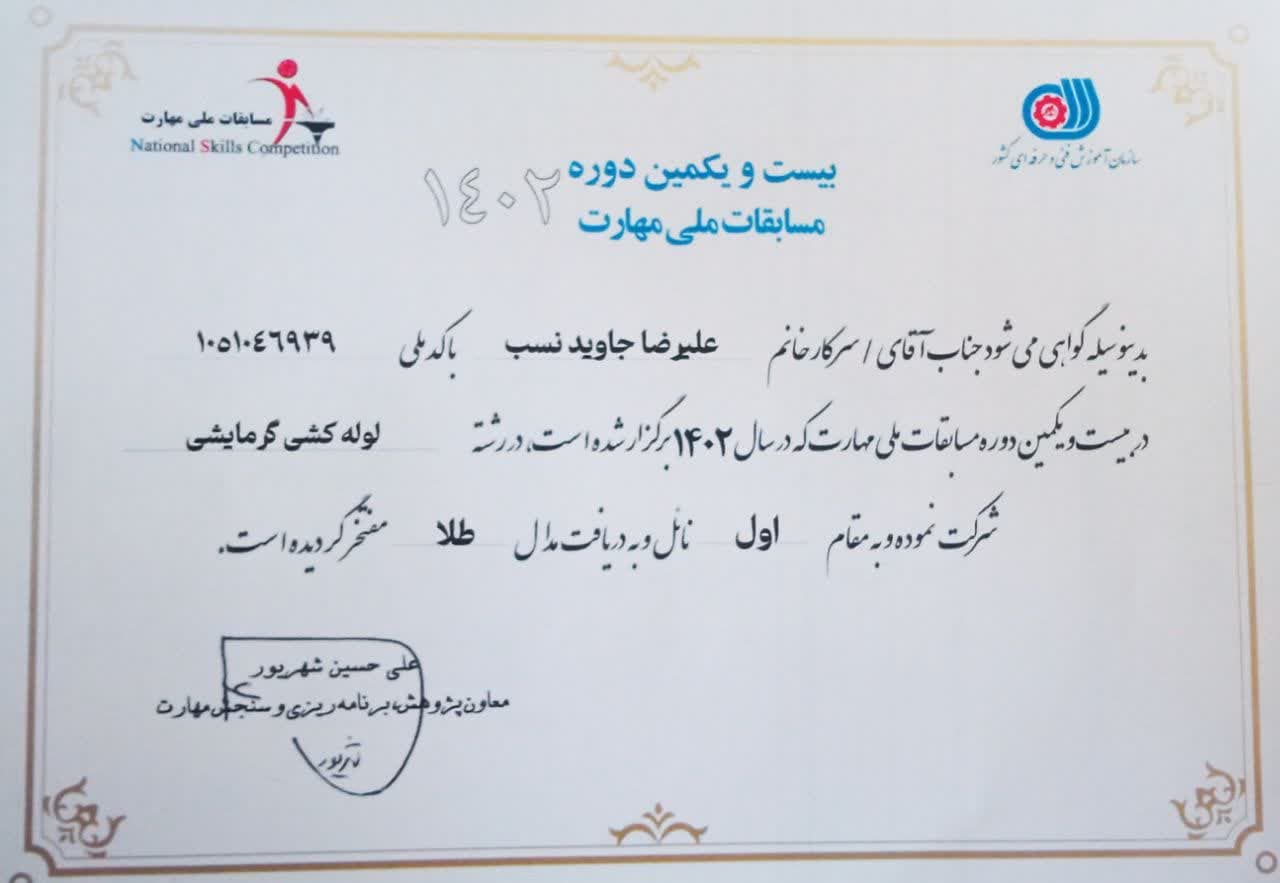 مسابقات ملی مهارت
National Skills Competition
سازمان آموزش فنی و حرفه ای کشور
بیست و یکمین دوره
مسابقات ملی مهارت
۱۴۰۲
بدینوسیله گواهی می شود جناب آقای / سرکار خانم علیرضا جاوید نسب با کد ملی ۱۰۵۱۰۴۶۹۳۹
در بیست و یکمین دوره مسابقات ملی مهارت که در سال ۱۴۰۲ برگزار شده است، در رشته لوله کشی گرمایشی
شرکت نموده و به مقام اول نائل و به دریافت مدال طلا مفتخر گردیده است.
علی حسین شهریور
معاون پژوهش، برنامه ریزی و سنجش مهارت